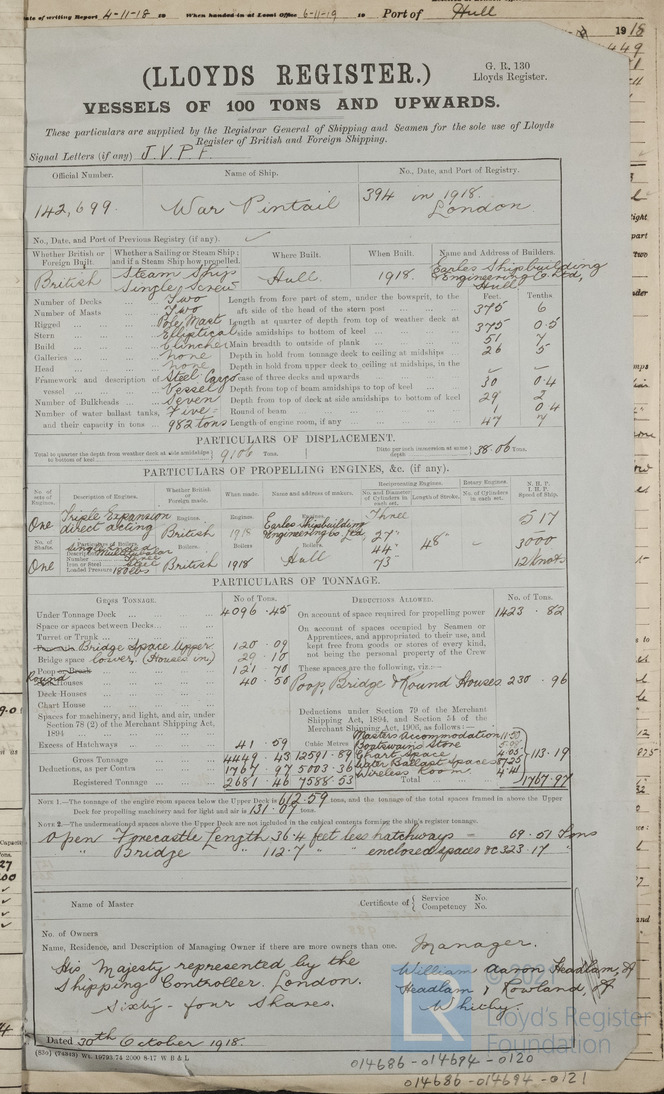 Date of writing Report 4-11-18 19 When handed in at Local Office 6-11-19 19 Port of Hull
1918
(LLOYDS REGISTER.)
G. R. 130
Lloyds Register.
VESSELS OF 100 TONS AND UPWARDS.
These particulars are supplied by the Registrar General of Shipping and Seamen for the sole use of Lloyds
Register of British and Foreign Shipping.
Signal Letters (if any) J.V.P.F.
Official Number. Name of Ship. No., Date, and Port of Registry.
142,699. War Pintail 394 in 1918.
London.
No., Date, and Port of Previous Registry (if any).
Whether British or Foreign Built. Whether a Sailing or Steam Ship; and if a Steam Ship how propelled. Where Built. When Built. Name and Address of Builders.
British Steam Ship Single Screw Hull. 1918. Earles Shipbuilding & Engineering Co. Ltd, Hull
Number of Decks Two
Number of Masts Two
Rigged Pole Mast
Stern Elliptical
Build Clincher
Galleries none
Head none
Framework and description of vessel Steel Cargo Vessel
Number of Bulkheads Seven
Number of water ballast tanks, and their capacity in tons Five: 982 tons
Feet. Tenths
Length from fore part of stem, under the bowsprit, to the aft side of the head of the stern post 375 6
Length at quarter of depth from top of weather deck at side amidships to bottom of keel 375 0.5
Main breadth to outside of plank 51 7
Depth in hold from tonnage deck to ceiling at midships 26 5
Depth in hold from upper deck to ceiling at midships, in the case of three decks and upwards - -
Depth from top of beam amidships to top of keel 30 0.4
Depth from top of deck at side amidships to bottom of keel 29 2
Round of beam 1 0.4
Length of engine room, if any 47 7
PARTICULARS OF DISPLACEMENT.
Total to quarter the depth from weather deck at side amidships to bottom of keel 9106 Tons. Ditto per inch immersion at same depth 38.06 Tons.
PARTICULARS OF PROPELLING ENGINES, &c. (if any).
No. of sets of Engines. Description of Engines. Whether British or Foreign made. When made. Name and address of makers. Reciprocating Engines. No. and Diameter of Cylinders in each set. Length of Stroke. Rotary Engines. No. of Cylinders in each set. N. H. P. I. H. P. Speed of Ship.
One Triple Expansion direct acting Engines. British Engines. 1918 Engines. Earles Shipbuilding & Engineering Co. Ltd, Three 27" 44" 73" 48" - 517
3000
12 knots
No. of Shafts. Particulars of Boilers. Boilers. Boilers Boilers.
One Iron or Steel Steel Loaded Pressure 180 lbs British 1918 Hull
PARTICULARS OF TONNAGE.
GROSS TONNAGE. No. of Tons.
Under Tonnage Deck 4096.45
Space or spaces between Decks
Turret or Trunk
Bridge Space Upper 120.09
Bridge space lower (Houses in) 29.10
Poop 121.70
Round Houses 40.50
Deck Houses
Chart House
Spaces for machinery, and light, and air, under Section 78 (2) of the Merchant Shipping Act, 1894
Excess of Hatchways 41.59 Cubic Metres
Gross Tonnage 4449.43 12591.89
Deductions, as per Contra 1767.97 5003.36
Registered Tonnage 2681.46 7588.53
DEDUCTIONS ALLOWED. No. of Tons.
On account of space required for propelling power 1423.82
On account of spaces occupied by Seamen or Apprentices, and appropriated to their use, and kept free from goods or stores of every kind, not being the personal property of the Crew
These spaces are the following, viz.:—
Poop Bridge & Round Houses 230.96
Deductions under Section 79 of the Merchant Shipping Act, 1894, and Section 54 of the Merchant Shipping Act, 1906, as follows:—
Masters Accommodation 11.50
Boatswains Store
Chart Space 4.05
Water Ballast Space 87.25
Wireless Room 4.41
113.19
Total 1767.97
NOTE 1.—The tonnage of the engine room spaces below the Upper Deck is 612.59 tons, and the tonnage of the total spaces framed in above the Upper
Deck for propelling machinery and for light and air is 131.07 tons.
NOTE 2.—The undermentioned spaces above the Upper Deck are not included in the cubical contents forming the ship's register tonnage.
Open Forecastle Length 36.4 feet less hatchways = 69.51 Tons
" Bridge " 112.7 " " enclosed spaces &c 323.17 "
Name of Master Certificate of { Service No.
Competency No.
No. of Owners
Name, Residence, and Description of Managing Owner if there are more owners than one. Manager.
His Majesty represented by the
Shipping Controller. London.
Sixty-four Shares.
William Aaron Headlam,
Headlam & Rowland,
Whitby
Dated 30th October 1918.
(830) (74313) Wt. 19793/74 2000 8-17 W B & L
© 2021
LR
Lloyd's Register
Foundation
014686-014694-0120
014686-014694-0121